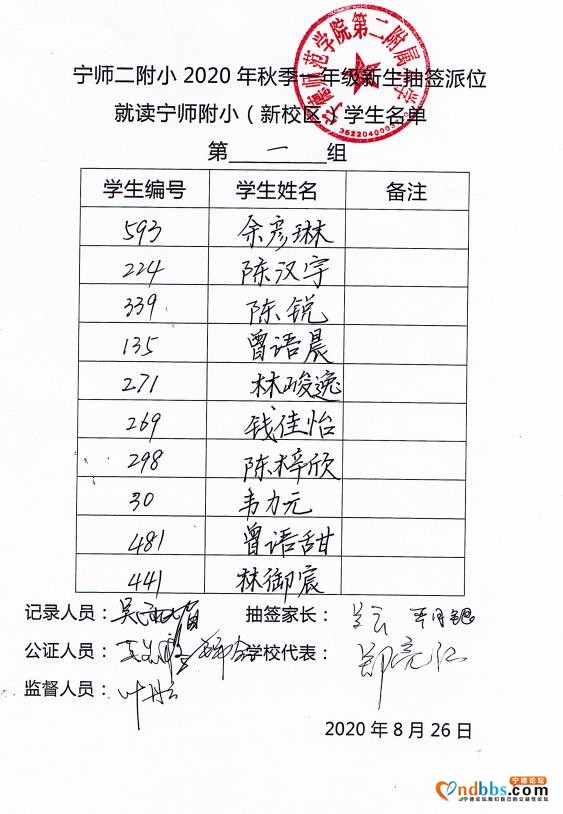 宁师二附小 2020 年秋季一年级新生抽签派位
就读宁师附小（新校区）学生名单
第 一 组
学生编号 学生姓名 备注
593 余彦琳
224 陈汉宇
339 陈锐
135 曾语晨
271 林峻逸
269 钱佳怡
298 陈梓欣
30 韦力元
481 曾语甜
441 林御宸
记录人员： 抽签家长：
公证人员： 学校代表：
监督人员：
2020 年 8 月 26 日
宁德论坛
ndbbs.com
宁德论坛,我们自己的公益性论坛